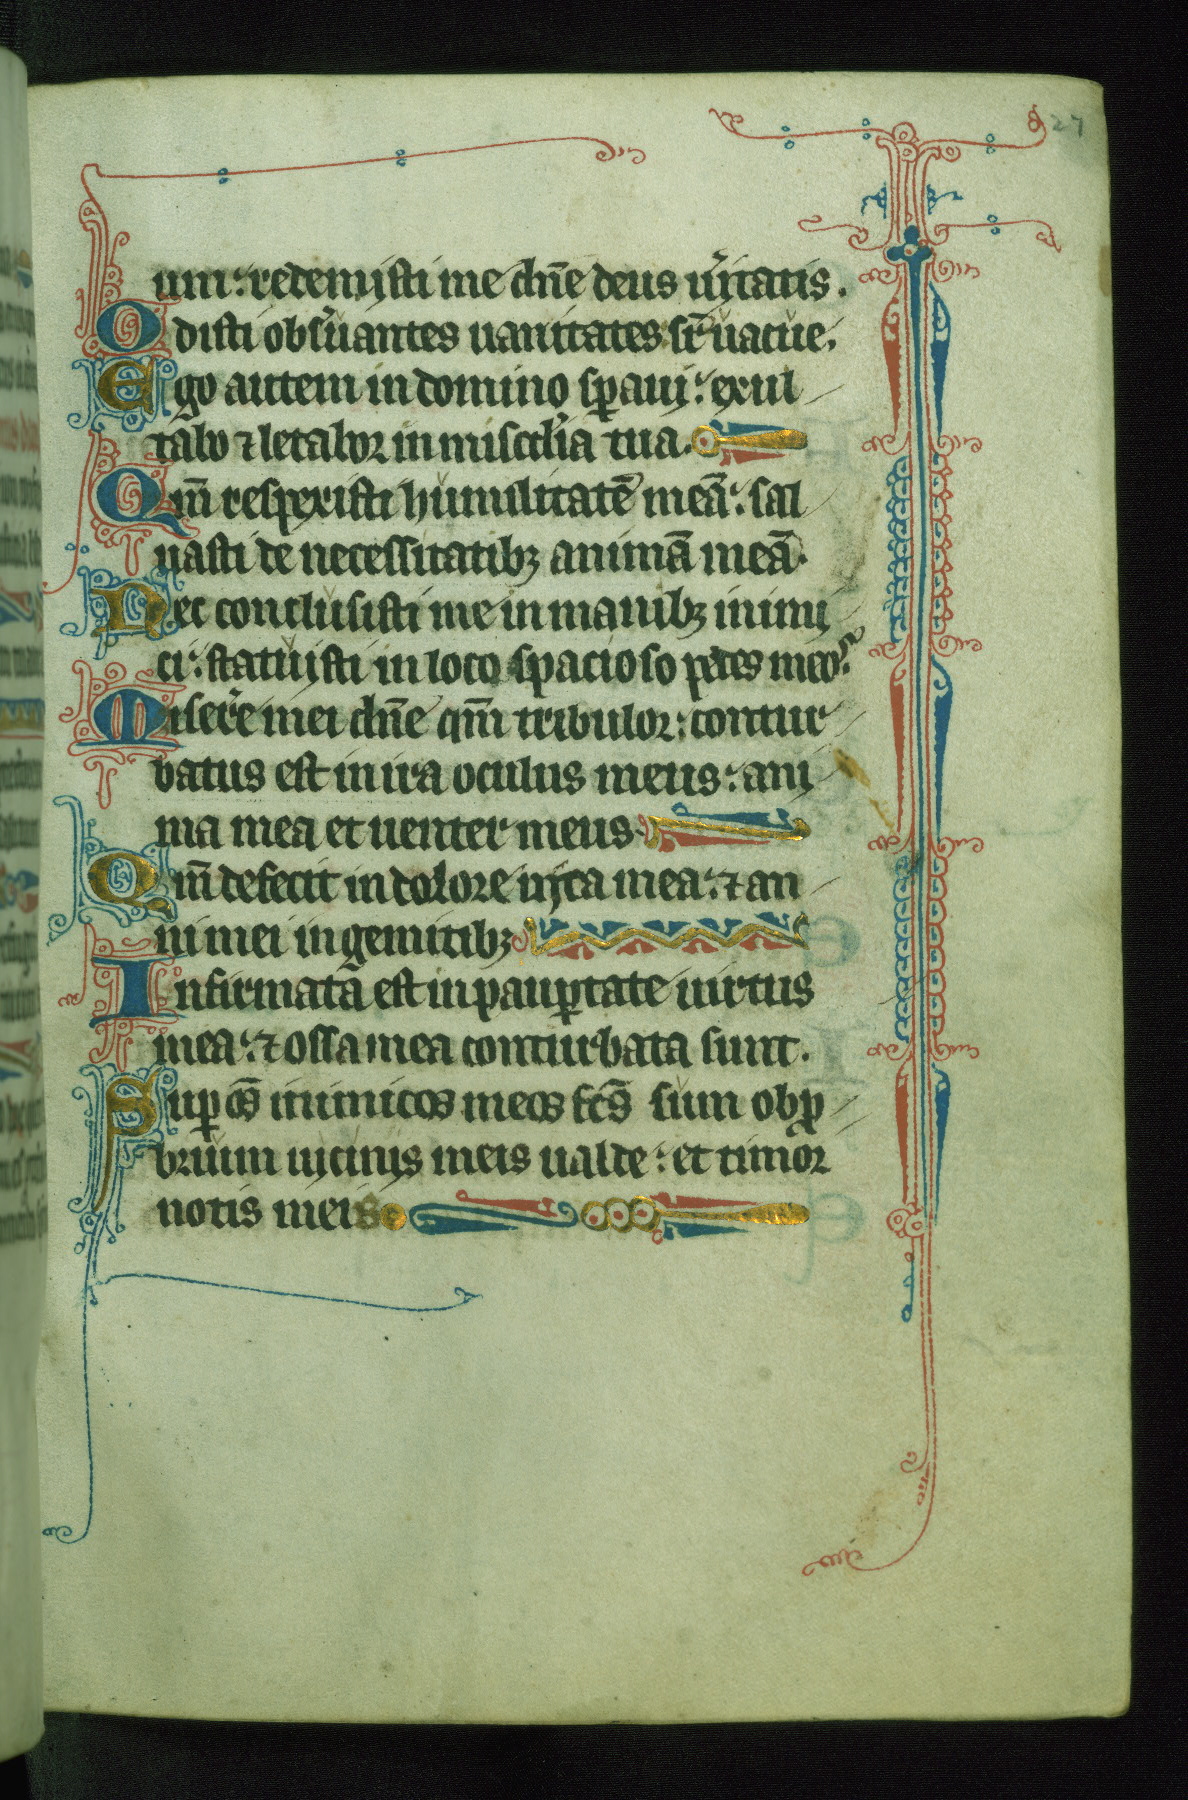 27
um: redemisti me dn̄e deus ũitatis.
Odisti obs̃uantes uanitates: sr̄ uacue.
Ego autem in domino sꝑaui: exul
tabo ⁊ letabor in misc̄dĩa tua.
Qm̄ respexisti humilitatē meā: sal
uasti de necessitatibꝫ animā meā.
Nec conclusisti me in manibꝫ inimi
ci: statuisti in loco spacioso pedes meoꝝ.
Miserẽ mei dn̄e qm̄ tribulor: contur
batus est in ira oculus meus: ani
ma mea et uenter meus.
Qm̄ defecit in dolore uita mea: ⁊ an
ni mei in gemitibꝫ
Infirmata est in pauꝑtate uirtus
mea: ⁊ ossa mea conturbata sunt.
Suꝑ oēs inimicos meos fc̄s sum obꝓ
brium uicinis meis ualde: et timor
notis meis